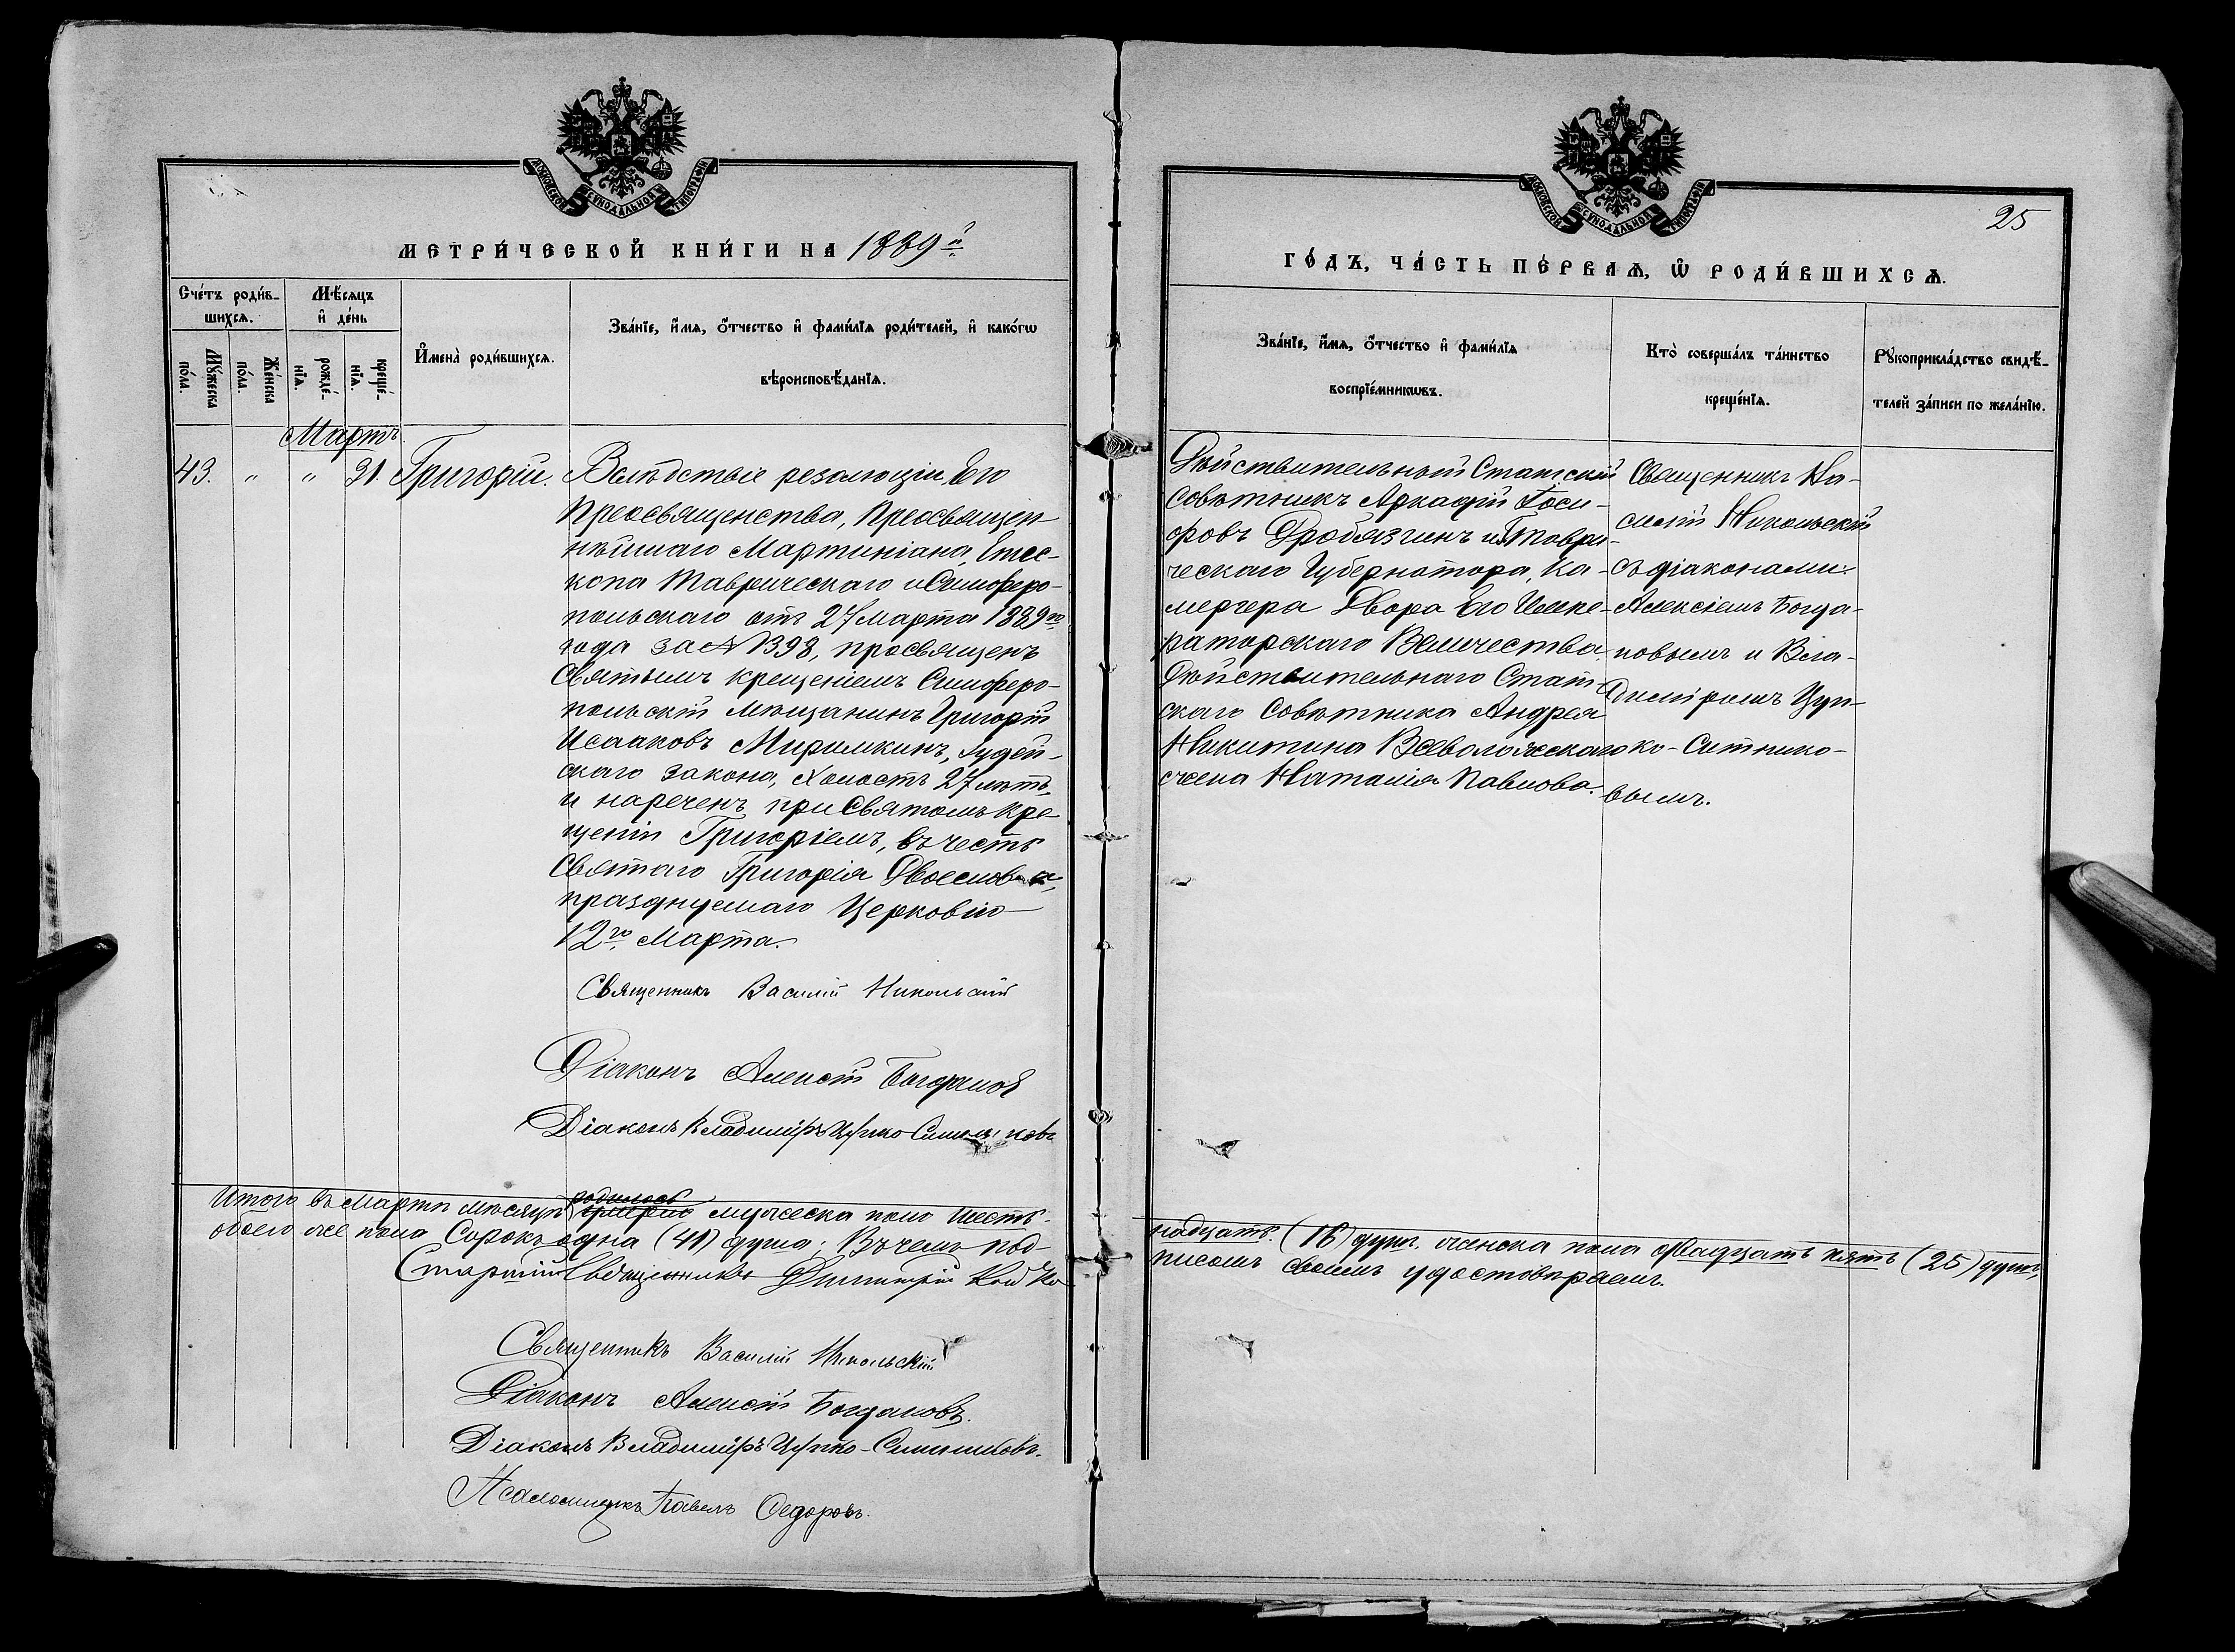 МОСКОВСКОЙ СѴНОДАЛЬНОЙ ТИПОГРАФІИ
МЕТРИ́ЧЕСКОЙ КНИ́ГИ НА 1889й
Сче́тъ роди́в-
шихся.
Мѣ́сяцъ
и҆ де́нь
Мꙋ́жеска
по́ла.
Же́нска
по́ла.
рожде́-
нїѧ.
креще́-
нїѧ.
И҆мена̀ роди́вшихсѧ.
Зва́нїе, и҆́мѧ, о҆́тчество и҆ фами́лїѧ роди́телей, и҆ како́гѡ
вѣроисповѣ́данїѧ.
Мартъ
43. " " 31. Григорій. Вслѣдствіе резолюціи Его
Преосвященства, Преосвящен-
нѣйшаго Мартиніана, Епис-
копа Таврическаго и Симферо-
польскаго отъ 27 марта 1889го
года за № 1398, просвященъ
Святымъ крещеніемъ Симферо-
польскій мѣщанинъ Григорій
Исааковъ Миримкинъ, Іудей-
скаго закона, холостъ 27 лѣтъ,
и нареченъ при Святомъ кре
щеніи Григоріемъ, въ честь
Святаго Григорія Двоеслова,
празднуемаго Церковію
12го Марта.
Священникъ Василій Никольскій
Діаконъ Алексій Богдановъ
Діаконъ Владиміръ Цупко Ситниковъ
Итого въ мартѣ мѣсяцѣ родилось умерло мужеска пола шест-
обоего же пола Сорокъ одна (41) душа; Въ чемъ под-
Старшій Священникъ Димитрій Койко
Священникъ Василій Никольскій
Діаконъ Алексій Богдановъ.
Діаконъ Владиміръ Цупко-Ситниковъ.
Псаломщикъ Павелъ Федоровъ.
МОСКОВСКОЙ СѴНОДАЛЬНОЙ ТИПОГРАФІИ
25
ГО́ДЪ, ЧА́СТЬ ПЕ́РВАѦ, Ѡ҆ РОДИ́ВШИХСѦ.
Зва́нїе, и҆́мѧ, о҆́тчество и҆ фами́лїѧ
воспрїе́мникѡвъ.
Кто̀ соверша́лъ та́инство
креще́нїѧ.
Рꙋкоприкла́дство свидѣ́-
телей за́писи по жела́нїю.
Дѣйствительный Статскій
Совѣтникъ Аркадій Іоси-
фовъ Дробязгинъ и Таври-
ческаго Губернатора, Ка-
мергера Двора Его Импе-
раторскаго Величества,
Дѣйствительнаго Стат-
скаго Совѣтника Андрея
Никитина Всеволожскаго
жена Наталія Павлова.
Священникъ Ва-
силій Никольскій
съ діаконами:
Алексіемъ Богда-
новымъ и Вла-
диміромъ Цуп-
ко-Ситнико-
вымъ.
надцать (16) душъ. женска пола двадцать пять (25) душъ,
писомъ своимъ удостовѣряемъ.